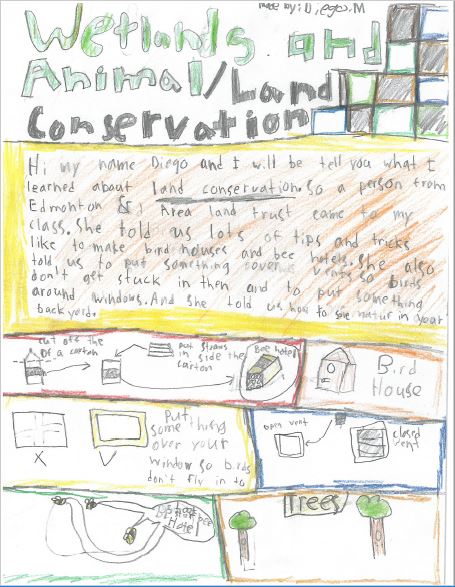 made by: Diego.M
Wetlands and
Animal/Land
Conservation
Hi my name Diego and I will be tell you what I
learned about land conservation. So a person from
Edmonton & Area land trust came to my
class. She told us lots of tips and tricks
like to make bird houses and bee hotels. She also
told us to put something cover vents so birds
don't get stuck in then and to put something
around windows. And she told us how to see natur in your
backyard.
cut off the
of a carton
put straws
in side the
carton
Bee hotel
Bird
House
X
V
Put
some thing
over your
window so birds
don't fly in to
open vent
closed
vent
bee
Hotel
Trees